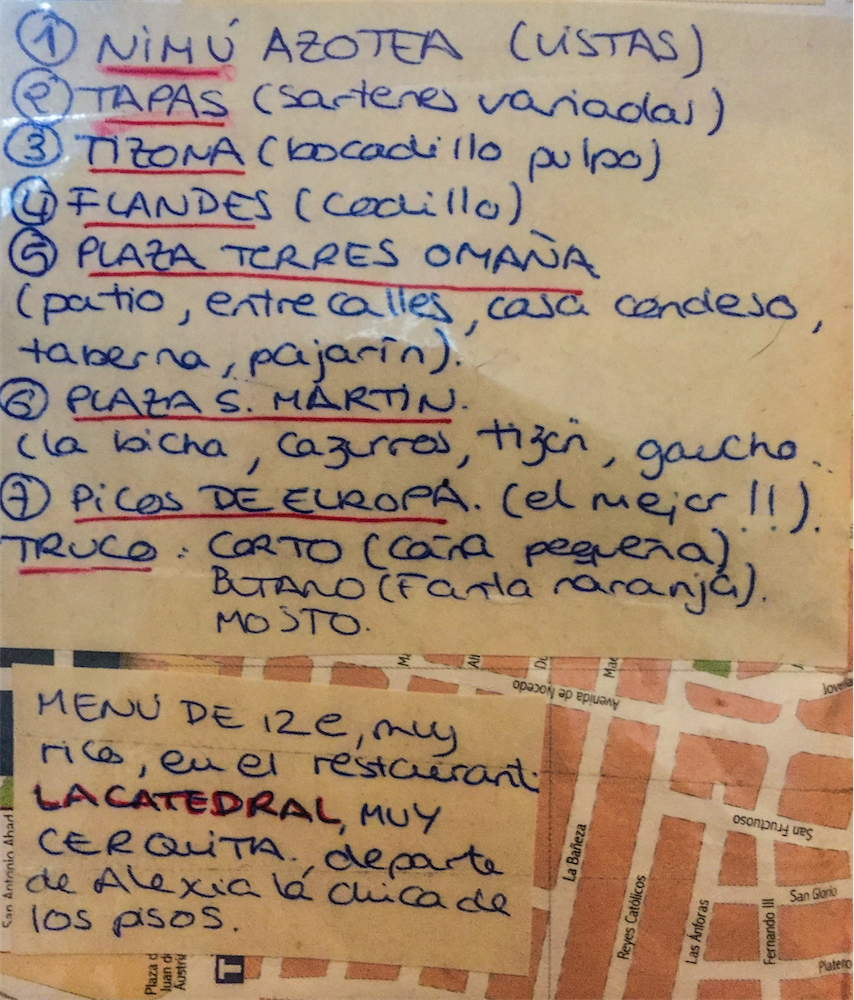 ① NIMÚ AZOTEA (VISTAS)
② TAPAS (sartenes variadas)
③ TIZONA (bocadillo pulpo)
④ FLANDES (codillo)
⑤ PLAZA TORRES OMAÑA
(patio, entre calles, casa condeso,
taberna, pajarín).
⑥ PLAZA S. MARTIN.
(la bicha, cazurros, tizón, gaucho..
⑦ PICOS DE EUROPA. (el mejor !!).
TRUCO: CORTO (caña pequeña)
BUTANO (Fanta naranja).
MOSTO.
MENÚ DE 12e, muy
rico, en el restaurant
LA CATEDRAL, MUY
CERQUITA., departe
de Alexia la chica de
los pisos.
Avenida de Nocedo
Jovella
San Fructuoso
La Bañeza
San Antonio Abad
San Glorio
Reyes Católicos
Las Ánforas
Fernando III
Platero
Plaza d
Juan de
Austria
T